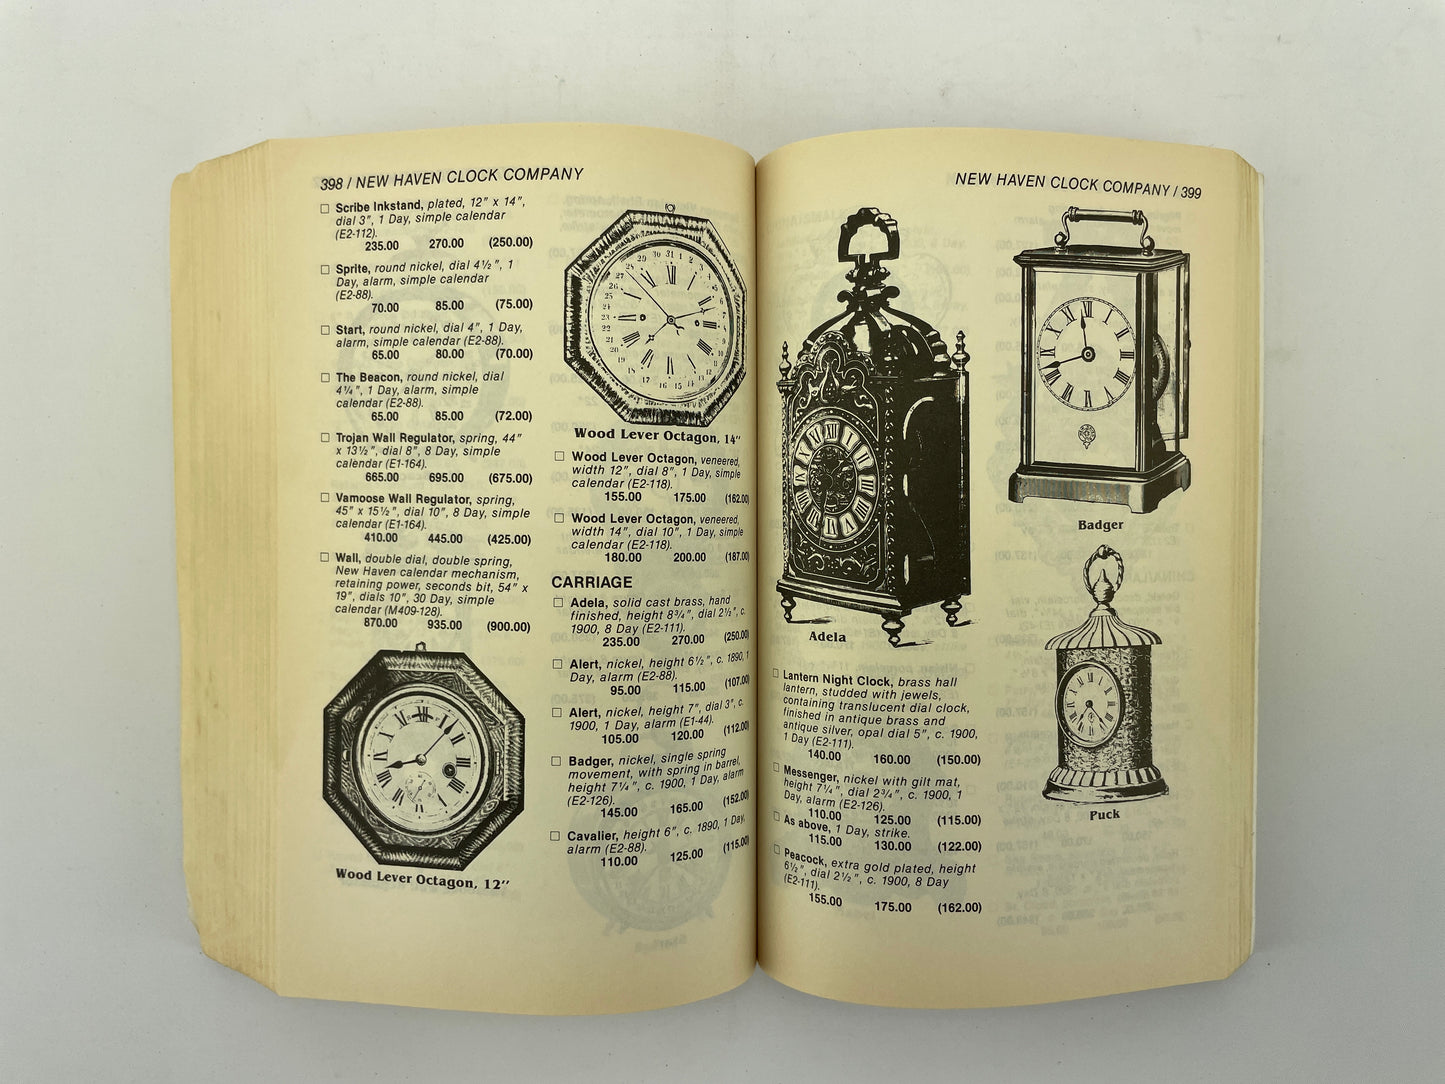 398 / NEW HAVEN CLOCK COMPANY
☐ Scribe Inkstand, plated, 12" x 14",
dial 3", 1 Day, simple calendar
(E2-112).
235.00 270.00 (250.00)
☐ Sprite, round nickel, dial 4½", 1
Day, alarm, simple calendar
(E2-88).
70.00 85.00 (75.00)
☐ Start, round nickel, dial 4", 1 Day,
alarm, simple calendar (E2-88).
65.00 80.00 (70.00)
☐ The Beacon, round nickel, dial
4¼", 1 Day, alarm, simple
calendar (E2-88).
65.00 85.00 (72.00)
☐ Trojan Wall Regulator, spring, 44"
x 13½", dial 8", 8 Day, simple
calendar (E1-164).
665.00 695.00 (675.00)
☐ Vamoose Wall Regulator, spring,
45" x 15½", dial 10", 8 Day, simple
calendar (E1-164).
410.00 445.00 (425.00)
☐ Wall, double dial, double spring,
New Haven calendar mechanism,
retaining power, seconds bit, 54" x
19", dials 10", 30 Day, simple
calendar (M409-128).
870.00 935.00 (900.00)
Wood Lever Octagon, 12"
Wood Lever Octagon, 14"
☐ Wood Lever Octagon, veneered,
width 12", dial 8", 1 Day, simple
calendar (E2-118).
155.00 175.00 (162.00)
☐ Wood Lever Octagon, veneered,
width 14", dial 10", 1 Day, simple
calendar (E2-118).
180.00 200.00 (187.00)
CARRIAGE
☐ Adela, solid cast brass, hand
finished, height 8¾", dial 2½", c.
1900, 8 Day (E2-111).
235.00 270.00 (250.00)
☐ Alert, nickel, height 6½", c. 1890, 1
Day, alarm (E2-88).
95.00 115.00 (107.00)
☐ Alert, nickel, height 7", dial 3", c.
1900, 1 Day, alarm (E1-44).
105.00 120.00 (112.00)
☐ Badger, nickel, single spring
movement, with spring in barrel,
height 7¼", c. 1900, 1 Day, alarm
(E2-126).
145.00 165.00 (152.00)
☐ Cavalier, height 6", c. 1890, 1 Day,
alarm (E2-88).
110.00 125.00 (115.00)
NEW HAVEN CLOCK COMPANY / 399
Adela
☐ Lantern Night Clock, brass hall
lantern, studded with jewels,
containing translucent dial clock,
finished in antique brass and
antique silver, opal dial 5", c. 1900,
1 Day (E2-111).
140.00 160.00 (150.00)
☐ Messenger, nickel with gilt mat,
height 7¼", dial 2¾", c. 1900, 1
Day, alarm (E2-126).
110.00 125.00 (115.00)
☐ As above, 1 Day, strike.
115.00 130.00 (122.00)
☐ Peacock, extra gold plated, height
6½", dial 2½", c. 1900, 8 Day
(E2-111).
155.00 175.00 (162.00)
Badger
Puck